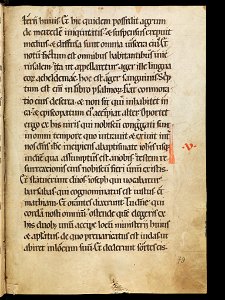 terii huius. Et hic quidem possidit agrum
de mercede iniquitatis & suspensus crepuit
medius & diffusa sunt omnia viscera eius. Et
notū factum est omnibus habitantibus
hierusalem ita ut appellaretur ager ille lingua
eor acheldemac. hoc est ager sanguinis. Scp
tum est enī in libro psalmor. fiat commora
tio eius deserta & non sit qui inhabitet in
ea & episcopatum ei accipiat alter. Oportet
ergo ex his uiris qui nobiscū congregati sunt
in omni tempore quo intrauit & exiuit int
nos dns ihs incipiens a baptismate iohis usq;
in diē qua assumptus est a nobis testem re
surrectionis eius nobiscū fieri unū ex istis.
Et statuerunt duos ioseph qui uocabatur
barsabas qui cognominatus est iustus &
mathiam. Et orantes dixerunt. Tu dne qui
corda nosti omniū. ostende quē elegeris ex
his duob; unū accipe locū ministerii huius
& aplatus. de quo preuaricatus est iudas ut
abiret in locum suū. Et dederunt sortes eis.
.v.